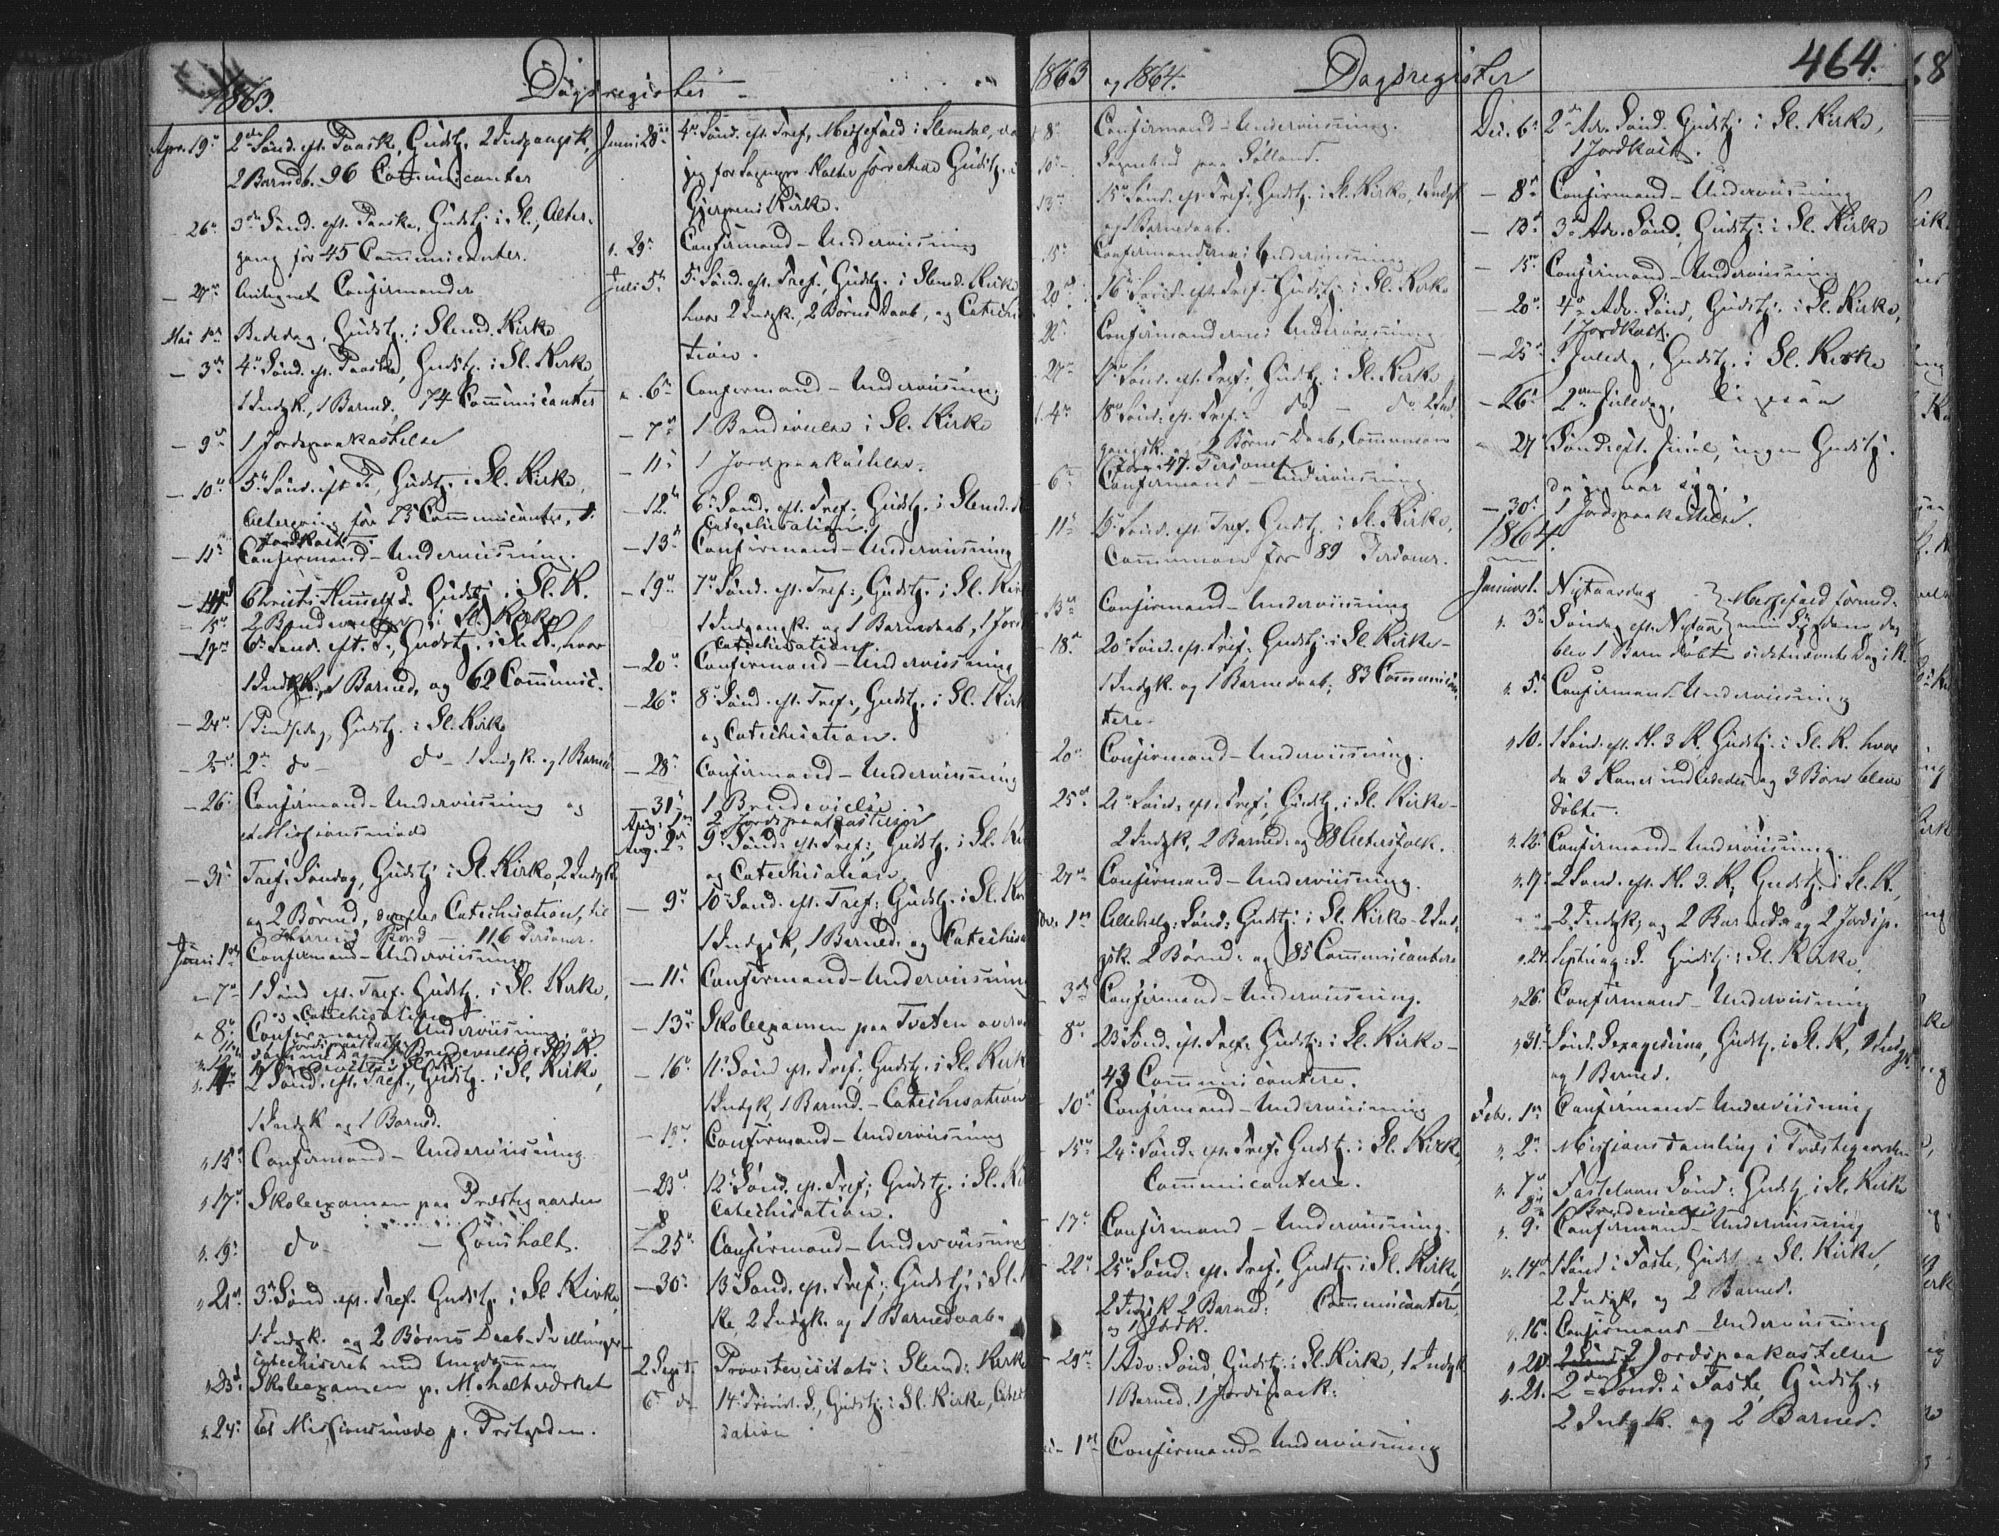 1863.
Dagsregister
Apr. 19de 2den Sønd. eft. Paaske, Gudstj. 2 Indgangsk,
2 Barndb. 96 Communicanter
- 26de 3die Sønd. eft. Paaske, Gudstj. i Sl., Alter-
gang for 45 Communicanter.
- 27de Antegnet Confirmander
Mai 1ste Bededag, Gudstj. i Slemd. Kirke
- 3de 4de Sønd. ef. Paaske, Gudstj. i Sl. Kirke,
1 Indgk., 1 Barned. 74 Communicanter
- 9de 1 Jordpaakastelse
- 10de 5te Sønd. eft P., Gudstj. i Sl. Kirke,
Altergang for 73 Communicanter, 1
Jordkast
- 11te Confirmand-Underviisning.
- 14de Christi Himmelf.d. Gudstj. i Sl. K.
- 15de 2 Brudevielser i Sl. Kirke
- 17de 6te Sønd. eft. P., Gudstj. i Sl. K., hvor
1 Indgk., 1 Barned. og 62 Communic.
- 24de 1 Pintsedag, Gudstj. i Sl. Kirke
- 25de 2den do - do - 1 Indgk. og 1 Barned.
- 26de Confirmand-Underviisning og
et Missionsmøde
- 31te Tref: Søndag, Gudstj i Sl. Kirke, 2 Indgk
og 2 Børned, derefter Catechisation, til
Herrens Bord - 116 Personer.
Juni 1ste Confirmand-Underviisning
- 7de 1 Sønd eft. Tref. Gudstj. i Sl. Kirke,
og Catechisation
- 8de Confirmand-Underviisning, og
- 14de 2 Sønd. eft. Tref., Gudstj. i Sl. Kirke,
1 Indgk og 1 Barned.
- 15de Confirmand-Underviisning
- 17de Skoleexamen paa Præstegaarden
- 19de do - Gonsholt.
- 21de 3de Sønd eft. Tref. Gudstj. i Sl Kirke,
1 Indgk. og 2 Børns Daab-Tvillinger
catechiseret med Ungdommen
- 23de Skoleexamen p. Moholtværket
- 24de Et Missionsmøde p. Prstgrden.
Juni 28de 4de Sønd. ef. Tref, Messefald i Slemdal, da
jeg for Sogneprs. Kalter forrettede Gudstj. i
Gjerpens Kirke.
- 29de Confirmand-Underviisning
Juli 5te 5te Sønd. eft. Tref., Gudstj. i Slemd. Kirke
hvor 2 Indgk., 2 Børns Daab, og Catechi
tion.
- 6te Confirmand-Underviisning
- 7de 1 Brudevielse i Sl. Kirke
- 11te 1 Jordpaakastelse.
- 12te 6te Sønd. eft. Tref. Gudstj. i Slemd. K
Catechisation.
- 13de Confirmand-Underviisning
- 19de 7de Sønd. eft. Tref:, Gudstj. i Sl. Kir
1 Indgangk. og 1 Barnedaab, 1 Jord
Catechisation.
- 20de Confirmand-Underviisning
- 26de 8de Sønd. eft. Tref:, Gudstj. i Sl. Kirk
og Catechisation.
- 28de Confirmand-Underviisning
- 31te 1 Brudevielse
Aug. 1ste 2 Jordpaakastelser
Aug. 2den 9de Sønd: ef. Tref:, Gudstj. i Sl. Ki
og Catechisation.
- 9de 10de Sønd. ef. Tref: Gudstj. i Sl. Kir
1 Indgk, 1 Barned. og Catechisa
- 11te Confirmand-Underviisning
- 13de Skoleexamen paa Tveten
- 16de 11te Sønd ef. Tref, Gudstj. i Sl. Kirk
1 Indgk, 1 Barned. - Catechisation
Confirmand-Underviisning
- 23de 12te Sønd. ef. Tref; Gudstj. i Sl. Ki
Catechisation.
- 25de Confirmand-Underviisning
- 30te 13de Sønd. ef. Tref; Gudstj. i Sl. K
ke, 2 Indgk. og 1 Barnedaab.
2 Sept. Provstevisitats i Slemd: Kirke
6te do 14de Trinit. S., Gudstj. i Sl. Kirke, Catechi
sation
1863 og 1864.
Dagsregister
464.
8de Confirmand-Underviisning.
10de Sognebud paa Sølland.
13de 15de Sønd. ef. Tref. Gudstj. i Sl. Kirke, 1 Indgk
og 1 Barnedaab.
15de Confirmandernes Underviisning
20de 16de Sønd. ef. Tref. Gudstj. i Sl. Kirke
22de Confirmandernes Underviisning
27de 17de Sønd. ef. Tref., Gudstj. i Sl. Kirke
4de 18de Sønd. ef. Tref: do - do 2 Ind-
gangsk. og 2 Børns Daab, Communion
for 47 Personer
6te Confirmand-Underviisning
11te 19de Sønd. ef. Tref. Gudstj. i Sl. Kirke,
Communion for 89 Personer.
13de Confirmand-Underviisning
- 18de 20de Sønd. ef. Tref; Gudstj. i Sl Kirke-
1 Indgk. og 1 Barnedaab; 83 Communican-
tere.
20de Confirmand-Underviisning.
25de 21de Sønd. ef. Tref; Gudstj. i Sl. Kirke-
2 Indgk, 2 Barned. og 88 Altersfolk.
- 27de Confirmand-Underviisning.
Nov. 1ste Allehelg: Sønd: Gudstj. i Sl. Kirke-2 Ind-
gsk. 2 Børned: og 85 Communicantere
- 3de Confirmand-Underviisning.
8de 23de Sønd. ef. Tref. Gudstj. i Sl. Kirke-
43 Communicantere.
- 10de Confirmand-Underviisning
- 15de 24de Sønd. ef. Tref. Gudstj. i Sl. Kirke,
Communicantere.
- 17de Confirmand-Underviisning.
- 22de 25de Sønd: ef. Tref, Gudstj. i Sl. Kirke,
2 Indgk 2 Barned: Communicantere,
og 1 Jordk.
- 29de 1 Adv: Sønd, Gudstj. i Sl. Kirke, 1 Indgk
1 Barned. 1 Jordspaak:
- 1ste Confirmand-Underviisning
Dec. 6te 2den Adv. Sønd. Gudstj. i Sl. Kirke,
1 Jordkast.
- 8de Confirmand-Underviisning
- 13de 3die Adv. Sønd. Gudstj. i Sl. Kirke
- 15de Confirmand-Underviisning
- 20de 4de Adv. Sønd, Gudstj. i Sl. Kirke,
1 Jordkast.
- 25de Juledag, Gudstj. i Sl. Kirke
- 26de 2den Juledag, ligesaa
- 27 Sønd. eft. Juul, ingen Gudstj.
da jeg var syg.
- 30te 1 Jordspaakastelse.
1864.
Januar 1. Nytaarsdag } Messefald formed-
- 3de Søndag eft. Nytaar } min Sygdom, dog
blev 1 Barn døbt sidstnævnte Dag i K.
- 5te Confirmand-Underviisning
- 10. 1 Sønd. eft. H. 3 K. Gudstj. i Sl. K. hvor
da 3 Koner indlededes og 3 Børn bleve
døbte.
- 12. Confirmand-Underviisning.
- 17. 2 Sønd. ef. H. 3. K, Gudstj. i Sl. K,
2 Indgk, og 2 Barneds og 2 Jordsp.
- 24. Septuag: S. Gudstj. i Sl. Kirke,
- 26. Confirmand-Underviisning
- 31te Sønd. Sexagesima, Gudstj. i Sl. K, 2 Indgk
og 1 Barned.
Feb. 1ste Confirmand-Underviisning
- 2den Missionssamling i Præstegaarden
- 7de Fastelavns Sønd: Gudstj. i Sl. Kirke
8de 1 Brudevielse
- 9. Confirmand-Underviisning
- 14de 1 Sønd i Faste, Gudstj. i Sl. Kirke,
2 Indgk, og 2 Barned.
- 16de Confirmand-Underviisning
- 20. 2 Jordspaakastelser
- 21. 2den Sønd. i Faste, Gudstj.,
2 Indgk. og 2 Barned.